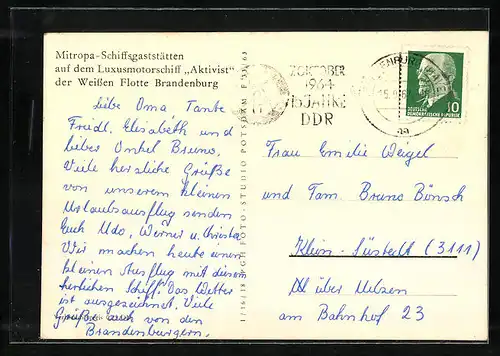 Mitropa-Schiffsgaststätten
auf dem Luxusmotorschiff „Aktivist"
der Weißen Flotte Brandenburg
Liebe Oma Tante
Friedl, Elisabeth und
lieber Onkel Bruno.
Viele herzliche Grüße
von unserem kleinen
Urlaubsausflug senden
Euch Udo, Werner u. Christa
Wir machen heute einen
kleinen Ausflug mit diesem
herrlichen Schiff. Das Wetter
ist ausgezeichnet. Viele
Grüße auch von den
Brandenburgern.
FOTO-STUDIO POTSDAM
7. OKTOBER
1964
15 JAHRE
DDR
10
DEUTSCHE
DEMOKRATISCHE REPUBLIK
aa
Frau Emilie Weigel
und Fam. Bruno Bönsch
Klein-Süstedt (3111)
über Uelzen
am Bahnhof 23